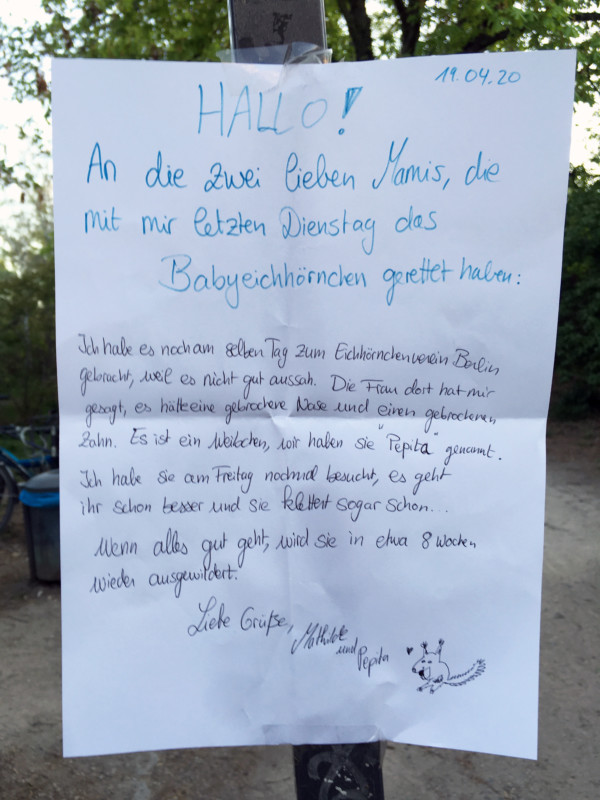 19.04.20
HALLO!
An die zwei lieben Mamis, die
mit mir letzten Dienstag das
Babyeichhörnchen gerettet haben:
Ich habe es noch am selben Tag zum Eichhörnchenverein Berlin
gebracht, weil es nicht gut aussah. Die Frau dort hat mir
gesagt, es hätte eine gebrochene Nase und einen gebrochenen
Zahn. Es ist ein Weibchen, wir haben sie "Pepita" genannt.
Ich habe sie am Freitag nochmal besucht, es geht
ihr schon besser und sie klettert sogar schon...
Wenn alles gut geht, wird sie in etwa 8 Wochen
wieder ausgewildert.
Liebe Grüße,
Mathilde
und
Pepita